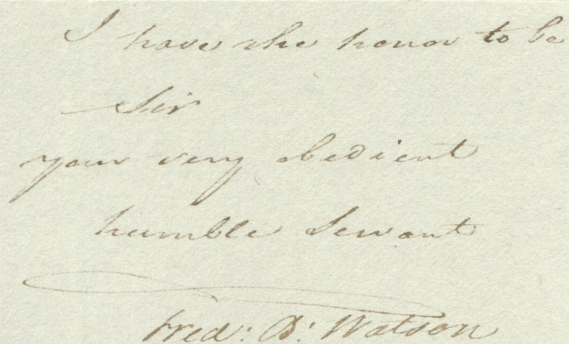 I have the honor to be
Sir
your very obedient
humble Servant
Fred: B: Watson